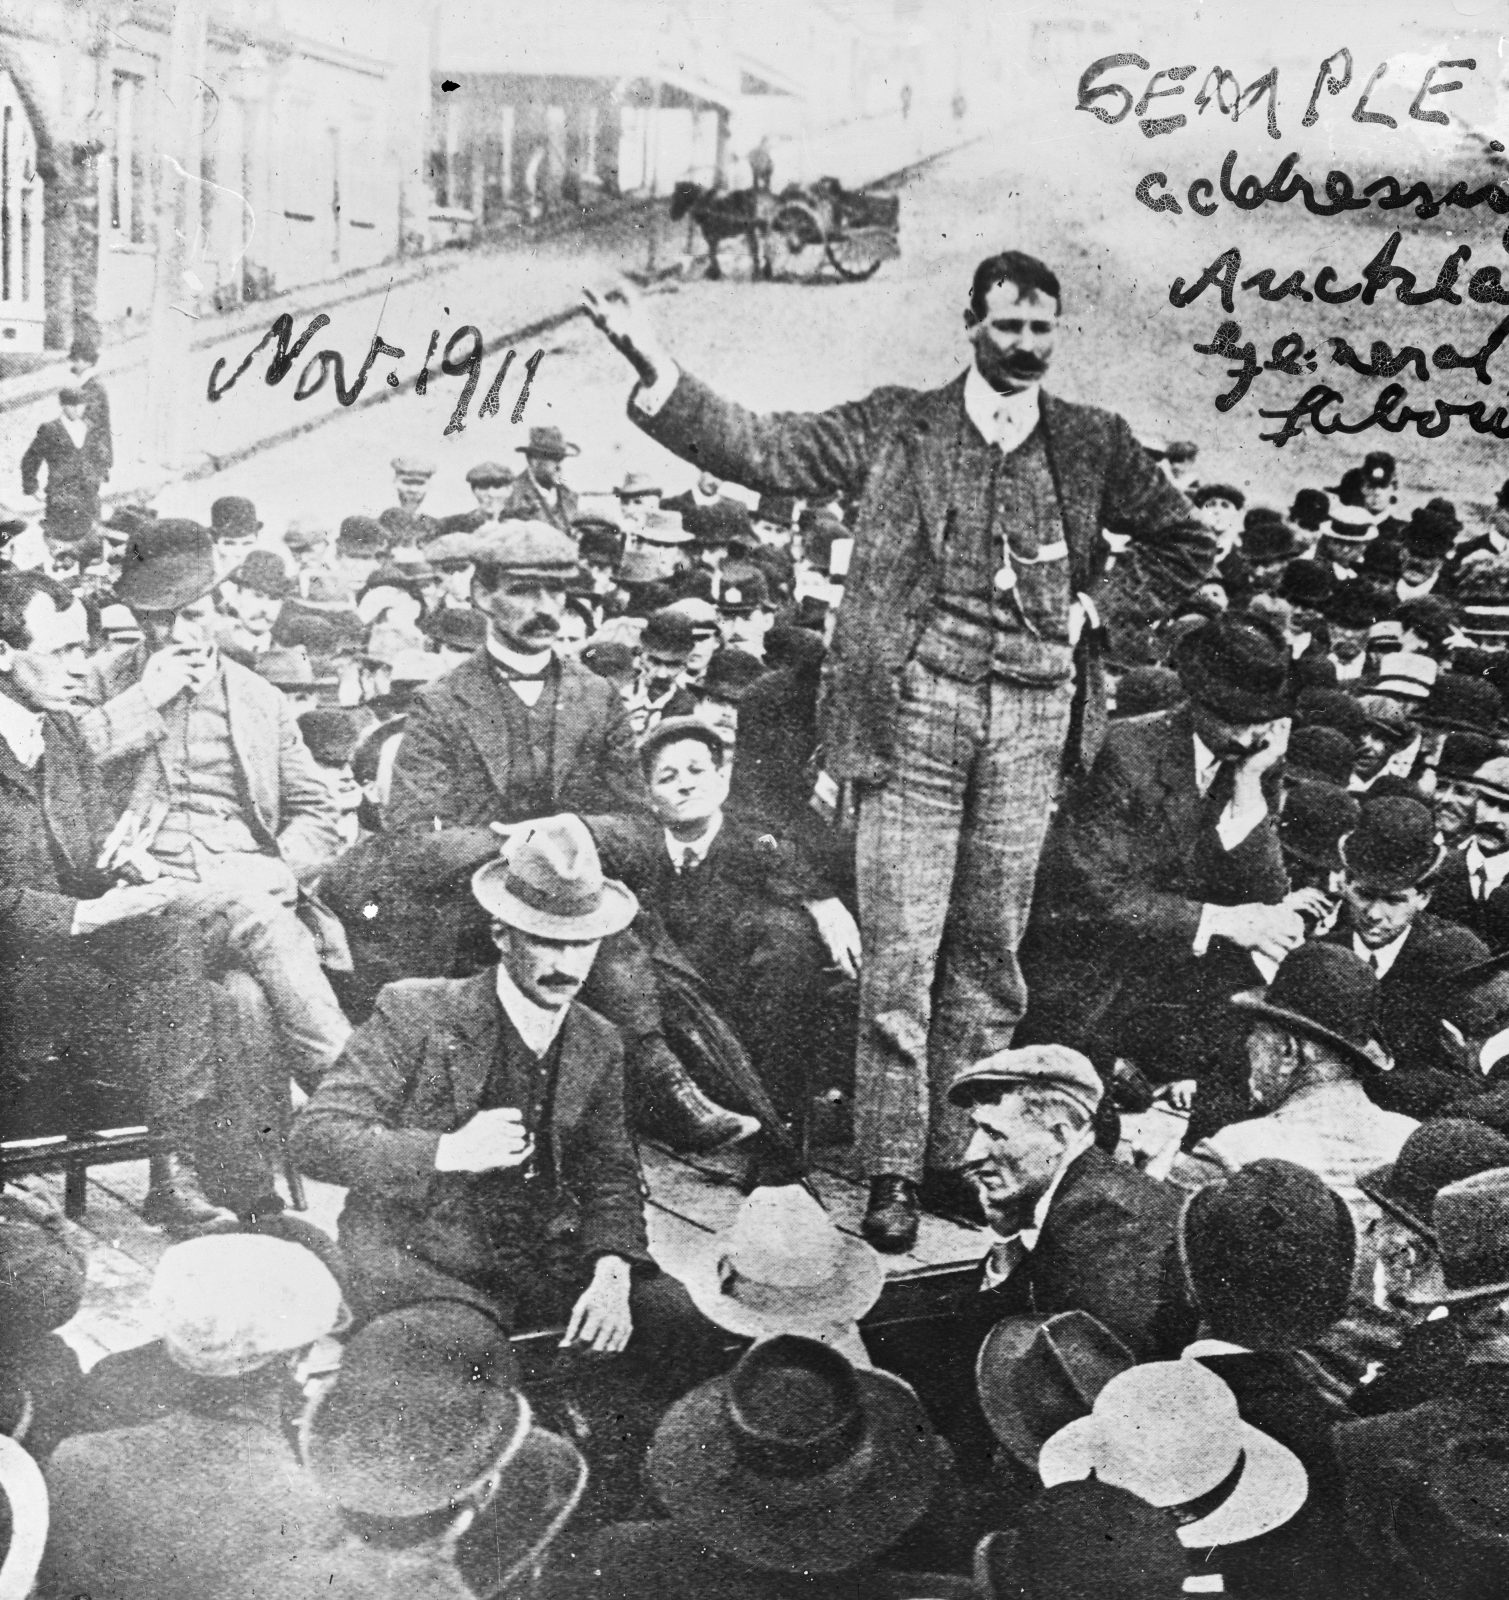 SEMPLE
addressin
Auckla
General
Labou
Nov. 1911